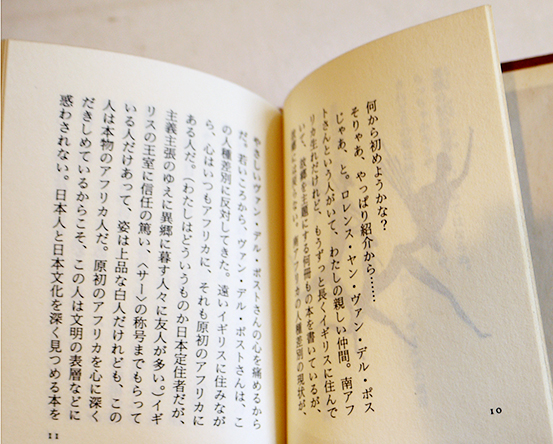 何から初めようかな?
そりゃあ、やっぱり紹介から……
じゃあ、と。ロレンス・ヤン・ヴァン・デル・ポス
トさんという人がいて、わたしの親しい仲間。南アフ
リカ生れだけれど、もうずっと長くイギリスに住んで
いて、故郷を主題にする何冊もの本を書いているが、
故郷には戻らない。南アフリカの人種差別の現状が、
10
やさしいヴァン・デル・ポストさんの心を痛めるから
だ。若いころから、ヴァン・デル・ポストさんは、こ
の人種差別に反対してきた。遠いイギリスに住みなが
ら、心はいつもアフリカに、それも原初のアフリカに
ある人だ。(わたしはどういうものか日本定住者だが、
主義主張のゆえに異郷に暮す人々に友人が多い。)イギ
リスの王室に信任の篤い、〈サー〉の称号までもらって
いる人だけあって、姿は上品な白人だけれども、この
人は本物のアフリカ人だ。原初のアフリカを心に深く
だきしめているからこそ、この人は文明の表層などに
惑わされない。日本人と日本文化を深く見つめる本を
11